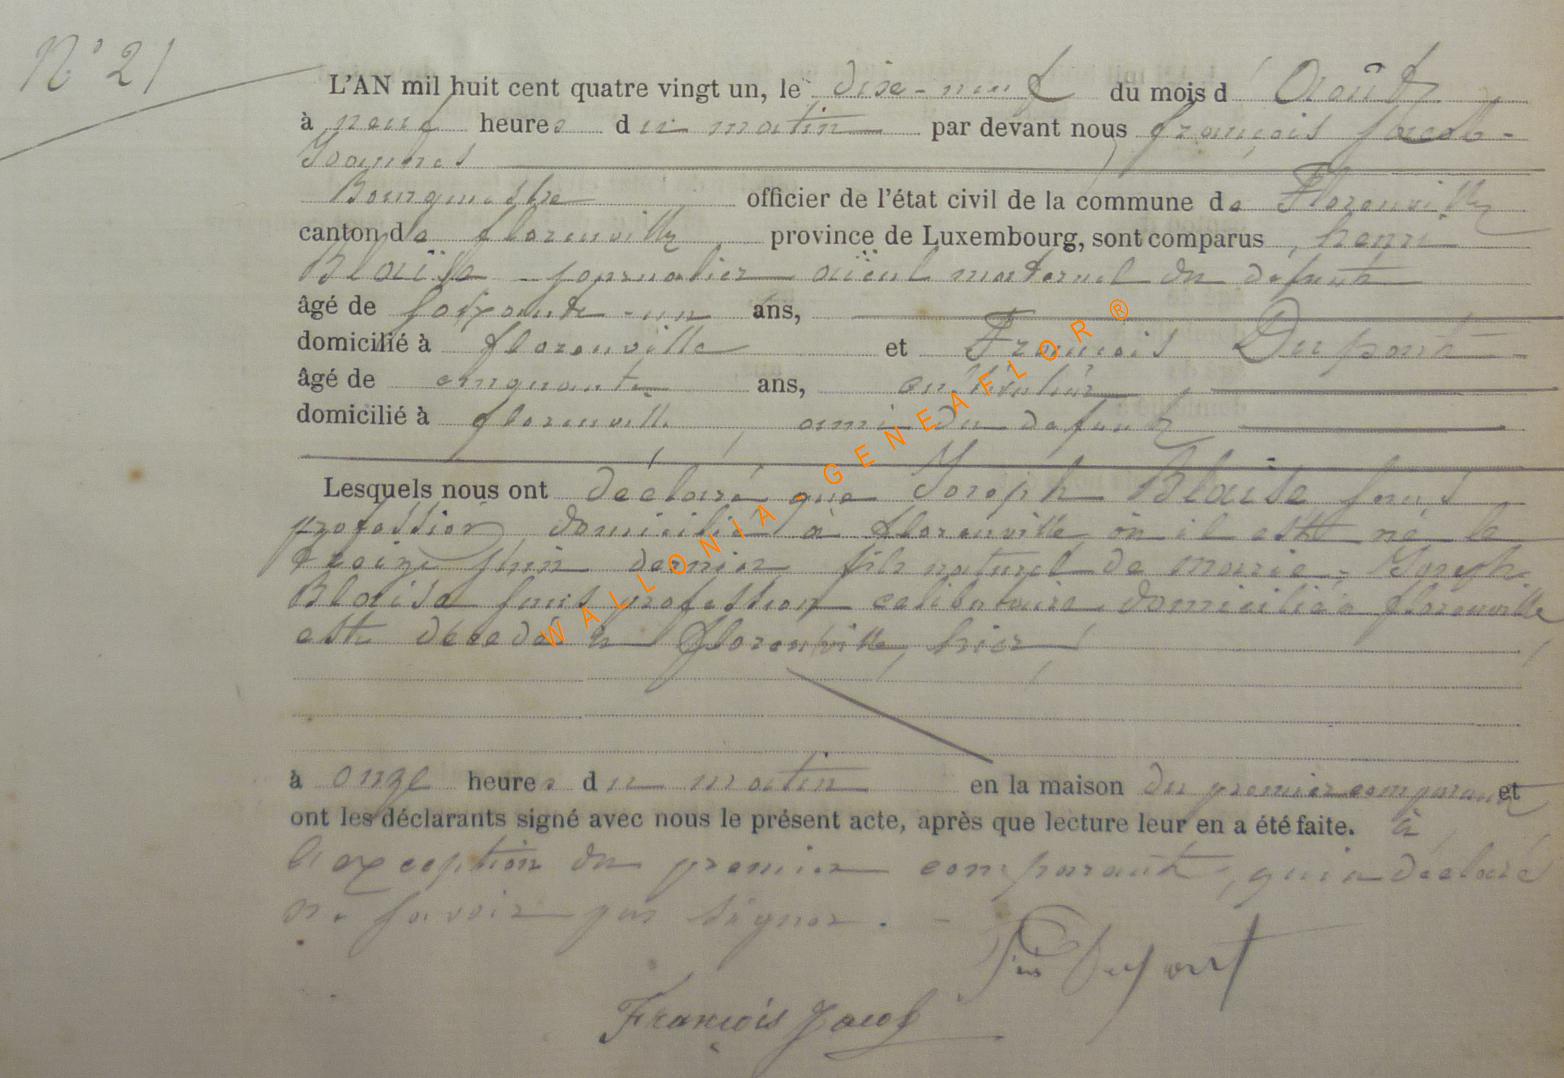 N° 21
L'AN mil huit cent quatre vingt un, le dise-neuf du mois d'Août
à neuf heures du matin par devant nous françois Jacob-
Joannes
Bourgmestre officier de l'état civil de la commune de Florenville
canton de florenville province de Luxembourg, sont comparus, henri
Blaise journalier aïeul maternel du defunt
âgé de soixante-un ans,
domicilié à florenville et François Dupont
âgé de cinquante ans, cultivateur
domicilié à florenville, ami du defunt
Lesquels nous ont déclaré que Joseph Blaise sans
profession domicilié à florenville où il est né le
treize juin dernier fils naturel de marie-Joseph
Blaise sans profession celibataire domiciliée à florenville
est décedé à florenville, hier,
à onze heures du matin en la maison du premier comparant et
ont les déclarants signé avec nous le présent acte, après que lecture leur en a été faite. à
l'exception du premier comparant, qui a déclaré
ne savoir pas signer. -
Dupont
François Jacob
WALLONIA - GENEAFLOR ®